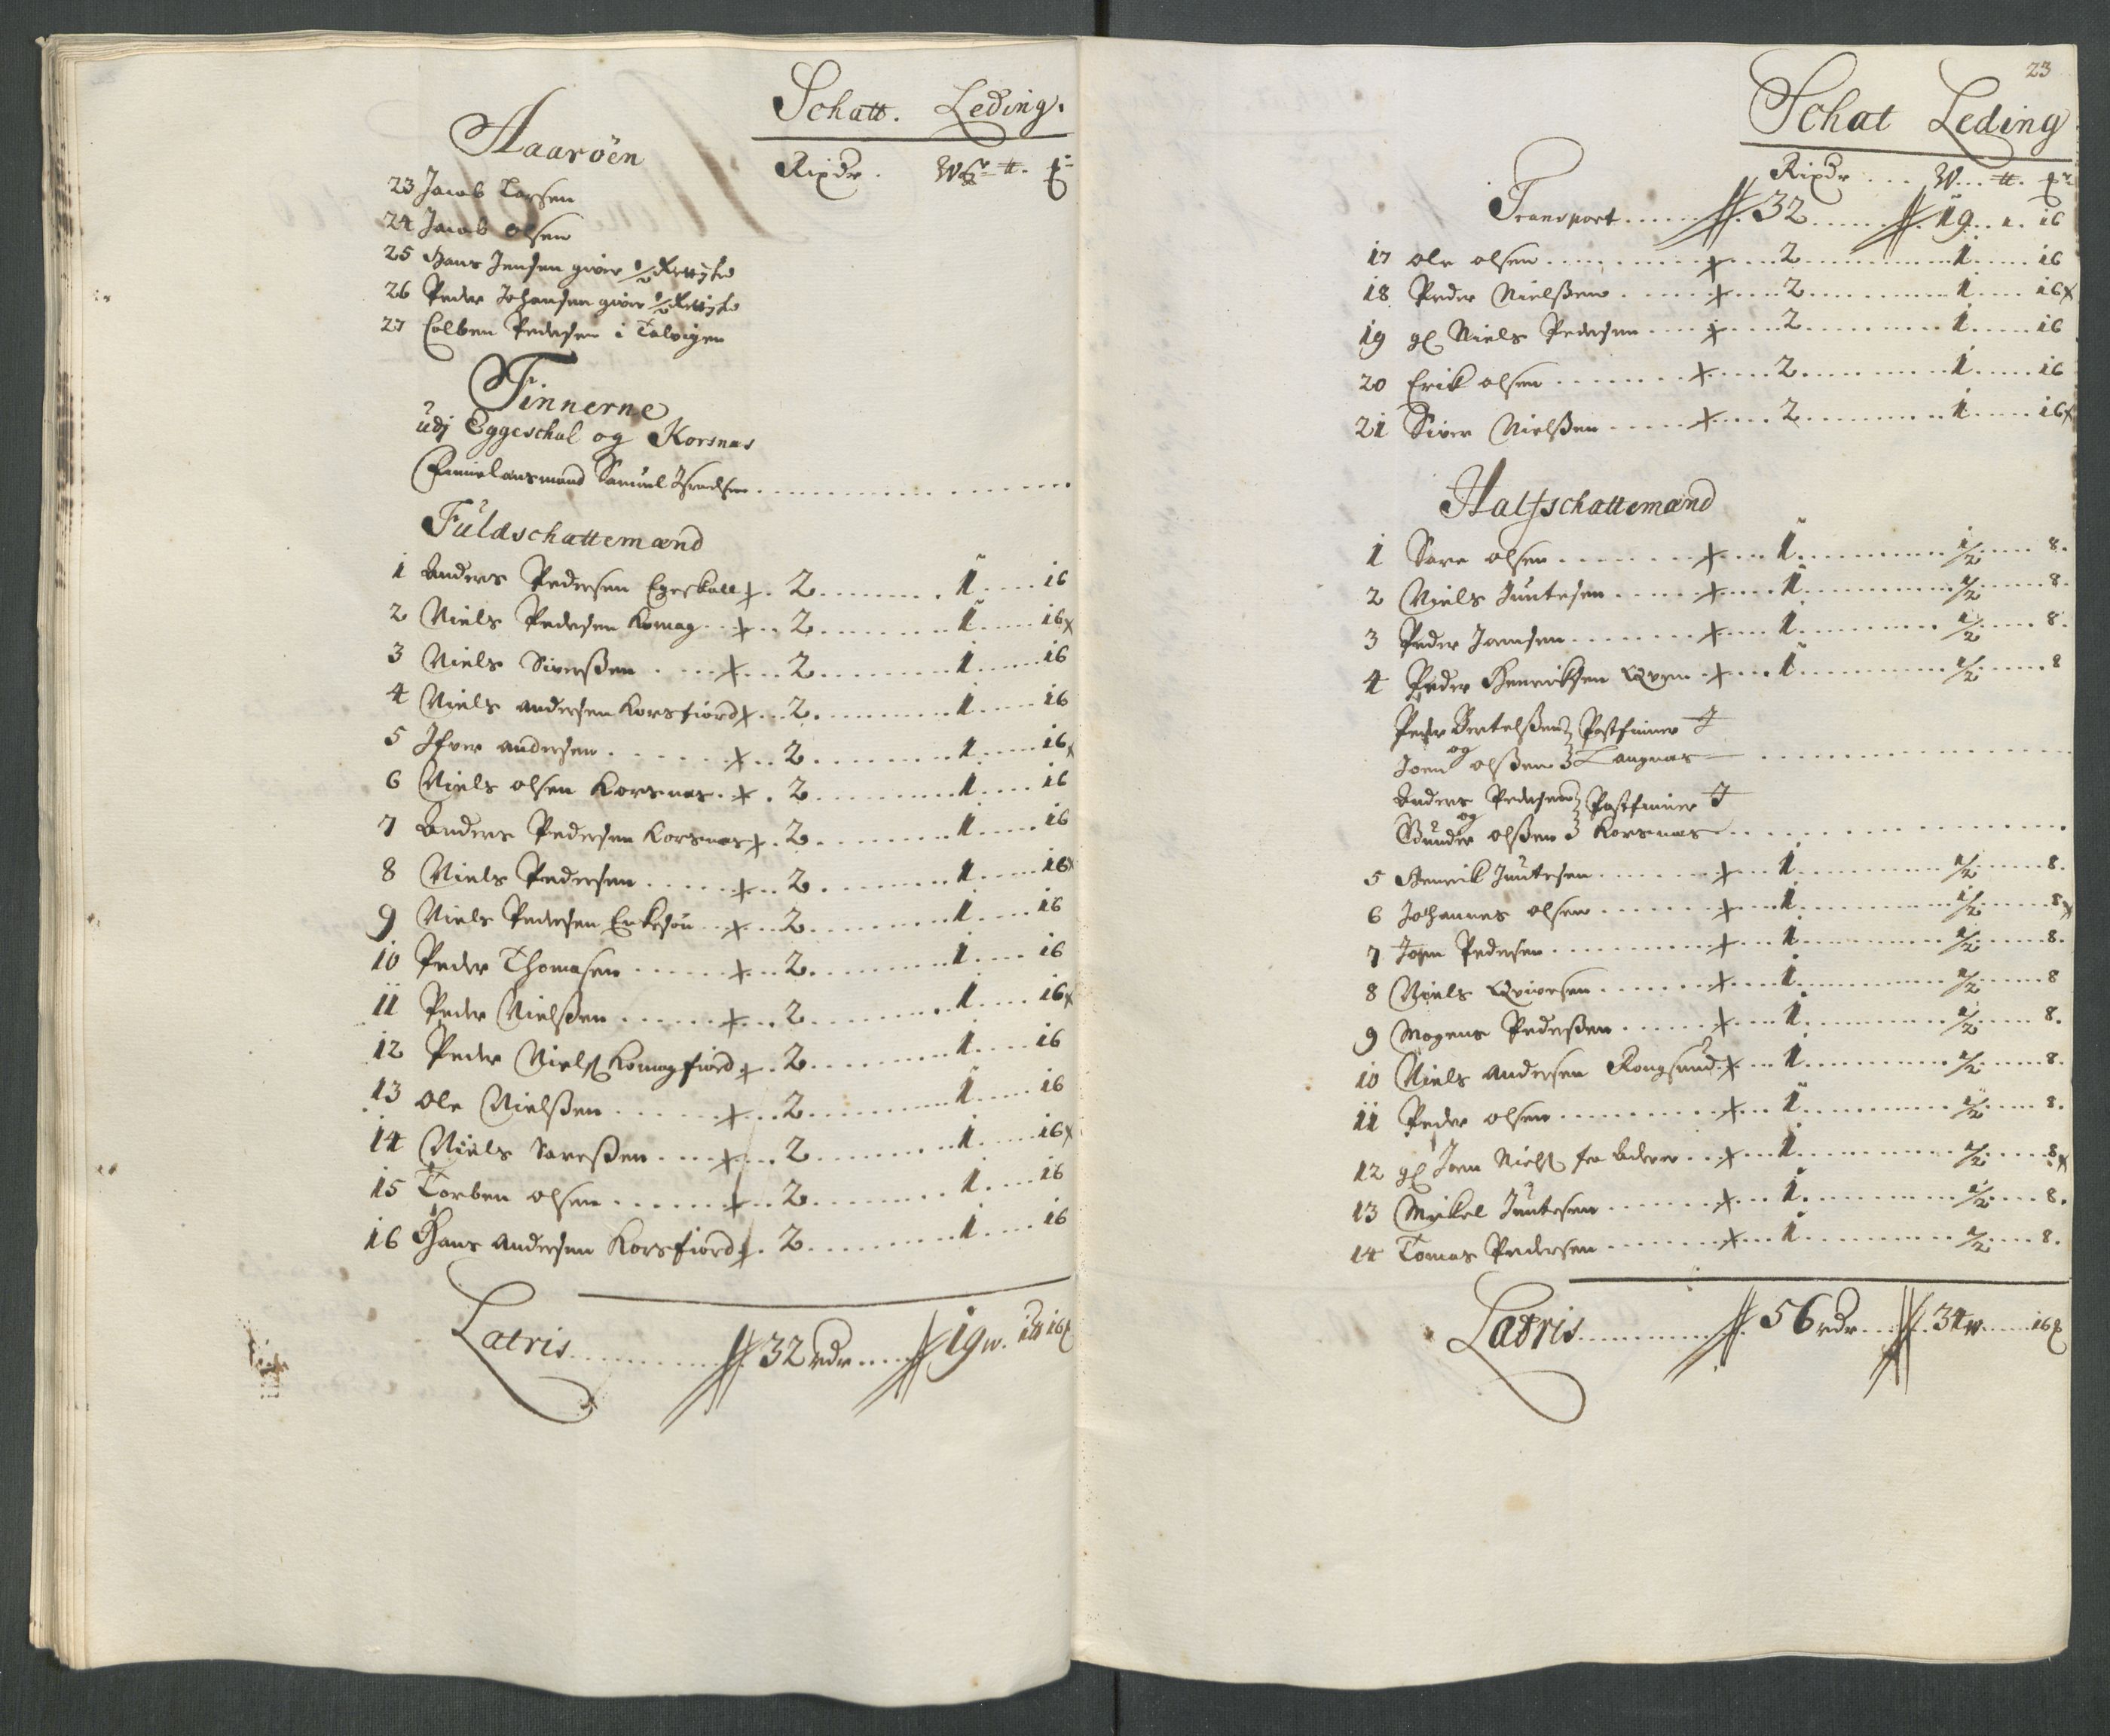 Schatt. Leding.
Aarøen
Rixdr. W ℔. ß
23 Jacob Larsen
24 Jacob Olsen
25 Hans Jensen giver 1/2
26 Peder Johansen giver 1/2
27 Colben Pedersen i Talvigen
Finnerne
udj Eggeschal og Korsnas
Finnelansmand Samuel Isradsen
Fuldschattemænd
1 Anders Pedersen Egeskall + 2 1 16
2 Niels Pedersen Komag + 2 1 16
3 Niels Siverßen + 2 1 16
4 Niels Andersen Korsfiord + 2 1 16
5 Ifver Andersen + 2 1 16
6 Niels Olsen Korsnas + 2 1 16
7 Anders Pedersen Korsnas + 2 1 16
8 Niels Pedersen + 2 1 16
9 Niels Pedersen + 2 1 16
10 Peder Thomasen + 2 1 16
11 Peder Nielßen + 2 1 16
12 Peder Niels Komagfiord + 2 1 16
13 Ole Nielßen + 2 1 16
14 Niels Sareßen + 2 1 16
15 Torben Olsen + 2 1 16
16 Hans Andersen Korsfiord + 2 1 16
Latris 32 rdr 19 w. 1 ℔ 16 ß
23
Schat Leding
Rixdr W ℔. ß
Transport 32 19 1. 16
17 Ole Olsen + 2 1 16
18 Peder Nielßen + 2 1 16
19 gl Niels Pedersen + 2 1 16
20 Erik Olsen + 2 1 16
21 Siver Nielßen + 2 1 16
Halfschattemænd
1 Sare Olsen + 1 1/2 8.
2 Niels Juutesen + 1 1/2 8.
3 Peder Joensen + 1 1/2 8.
4 Peder Henriksen Qven + 1 1/2 8
Peder Bertelßen Postfinner
og
Joen Olßen Langnas
Anders Pedersen Postfinner
og
Gunder Olßen Korsnas
5 Henrik Juutesen + 1 1/2 8.
6 Johannes Olsen + 1 1/2 8
7 Joen Pedersen + 1 1/2 8.
8 Niels + 1 1/2 8
9 Mogens Pederßen + 1 1/2 8.
10 Niels Andersen Rongsund + 1 1/2 8.
11 Peder Olsen + 1 1/2 8.
12 gl Joen Niels fra + 1 1/2 8
13 Mikel Juutesen + 1 1/2 8.
14 Tomas Pedersen + 1 1/2 8.
Latris 56 rdr 34 w 16 ß